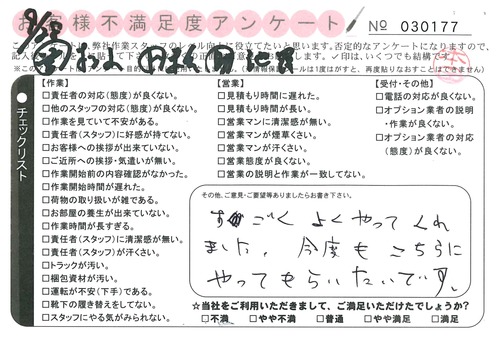 お客様不満足度アンケート
No 030177
このアンケートは、弊社作業スタッフのレベル向上に役立てたいと思います。否定的なアンケートになりますので、
9/3
【作業】
□責任者の対応(態度)が良くない。
□他のスタッフの対応(態度)が良くない。
□作業を見ていて不安がある。
□責任者(スタッフ)に好感が持てない。
□お客様への挨拶が出来ていない。
□ご近所への挨拶・気遣いが無い。
□作業開始前の内容確認がなかった。
□作業開始時間が遅れた。
□荷物の取り扱いが雑である。
□お部屋の養生が出来ていない。
□作業時間が長すぎる。
□責任者(スタッフ)に清潔感が無い。
□責任者(スタッフ)が汗くさい。
□トラックが汚い。
□梱包資材が汚い。
□運転が不安(下手)である。
□靴下の履き替えをしてない。
□スタッフにやる気がみられない。
【営業】
□見積もり時間に遅れた。
□見積もり時間が長い。
□営業マンに清潔感が無い。
□営業マンが煙草くさい。
□営業マンが汗くさい。
□営業態度が良くない。
□営業の説明と作業が一致してない。
【受付・その他】
□電話の対応が良くない。
□オプション業者の説明
・作業が良くない。
□オプション業者の対応
(態度)が良くない。
チェックリスト
その他、ご意見・ご要望等ありましたらお書き下さい。
すごく よくやってくれ
ました。今度もこちらに
やってもらいたいです。
☆当社をご利用いただきまして、ご満足いただけたでしょうか?
□不満 □やや不満 □普通 □やや満足 □満足